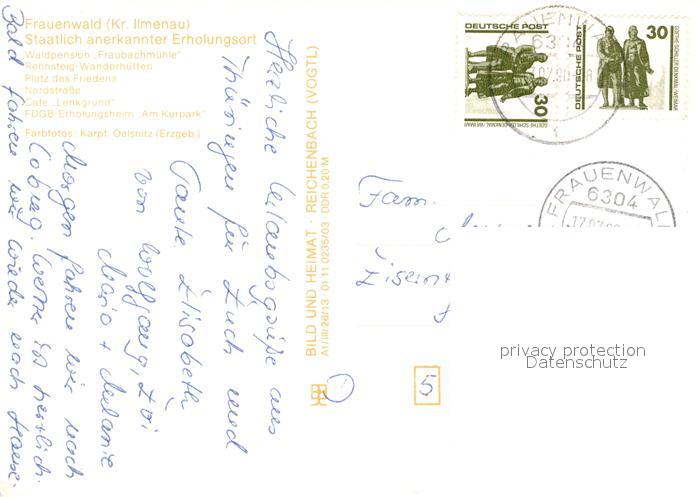 Frauenwald (Kr. Ilmenau)
Staatlich anerkannter Erholungsort
Waldpension „Fraubachmühle"
Rennsteig-Wanderhütten
Platz des Friedens
Nordstraße
Café „Lenkgrund"
FDGB-Erholungsheim „Am Kurpark"
Farbfotos: Karpf, Oelsnitz (Erzgeb.)
Herzliche Urlaubsgrüße aus
Thüringen für Euch und
Tante Elisabeth
von Wolfgang, Evi
Mario + Melanie
Morgen fahren wir nach
Coburg. Wetter ist herrlich.
Bald fahren wir wieder nach Hause.
BILD UND HEIMAT · REICHENBACH (VOGTL)
A1/III/26/13 · 01 11 0235/03 · DDR 0,20 M
DEUTSCHE POST
30
GOETHE-SCHILLER-DENKMAL, WEIMAR
DEUTSCHE POST
30
GOETHE-SCHILLER-DENKMAL, WEIMAR
FRAUENWALD
6304
FRAUENWALD
6304
Fam.
5
privacy protection
Datenschutz